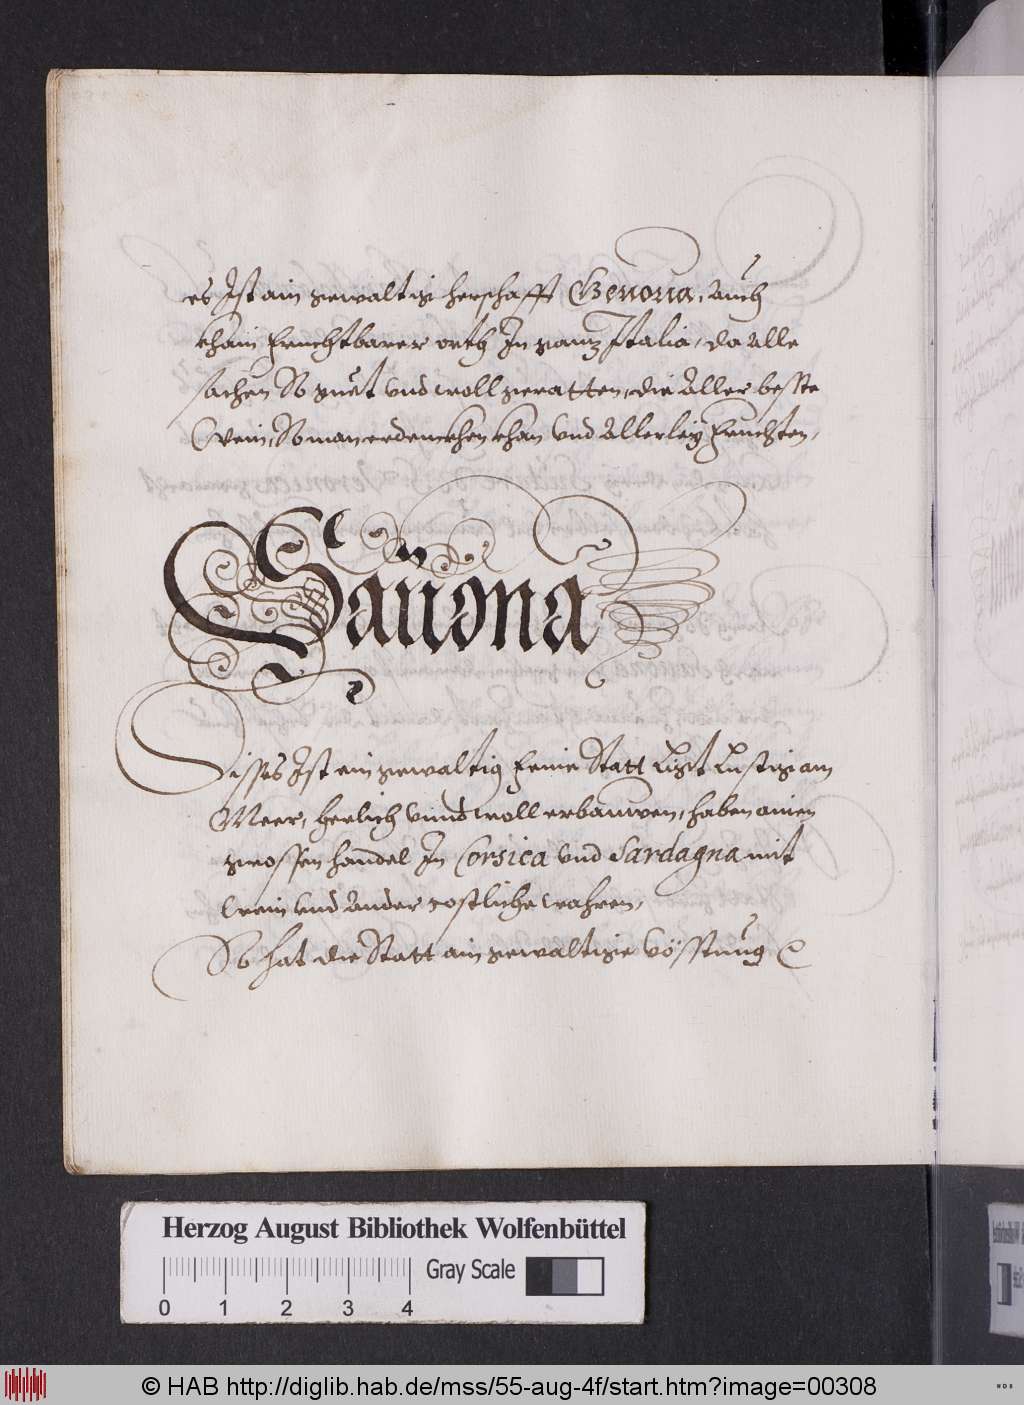 es Ist ain gewaltige herschafft Genoua, Auch
khain Fruchtbarer orth In gantz Italia, da Alle
sachen So guet vnd woll geratten, die Aller beste
Wein, So man erdenckhen khan vnd Allerley Fruchten,
Sauona
Disses Ist ein gewaltig Feine Statt Ligt Lustig am
Meer, herlich vnnd woll erbauwen, haben ainen
grossen handel In Corsica vnd Sardagna mit
Wein vnd Ander costliche wahren,
So hat die Statt ain gewaltige vösstung
Herzog August Bibliothek Wolfenbüttel
Gray Scale
0 1 2 3 4
© HAB http://diglib.hab.de/mss/55-aug-4f/start.htm?image=00308